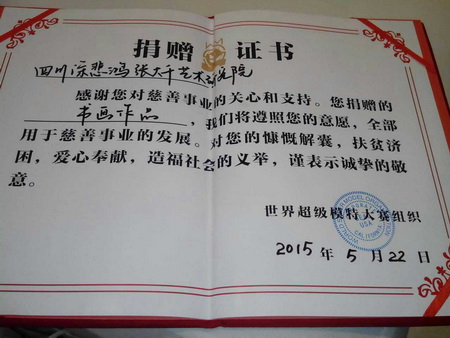 捐赠证书
四川徐悲鸿张大千艺术研究院
感谢您对慈善事业的关心和支持。您捐赠的
书画作品，我们将遵照您的意愿，全部
用于慈善事业的发展。对您的慷慨解囊，扶贫济
困，爱心奉献，造福社会的义举，谨表示诚挚的敬
意。
世界超级模特大赛组织
WORLD SUPER MODEL ORGANIZATION
USA
CALIFORNIA
2015年5月22日